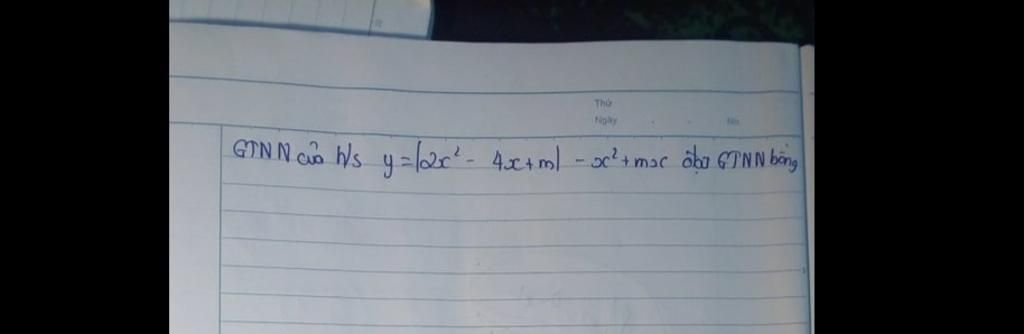 Thứ
Ngày . . No
GTNN của h/s y = |2x² - 4x + m| - x² + mx đạt GTNN bằng